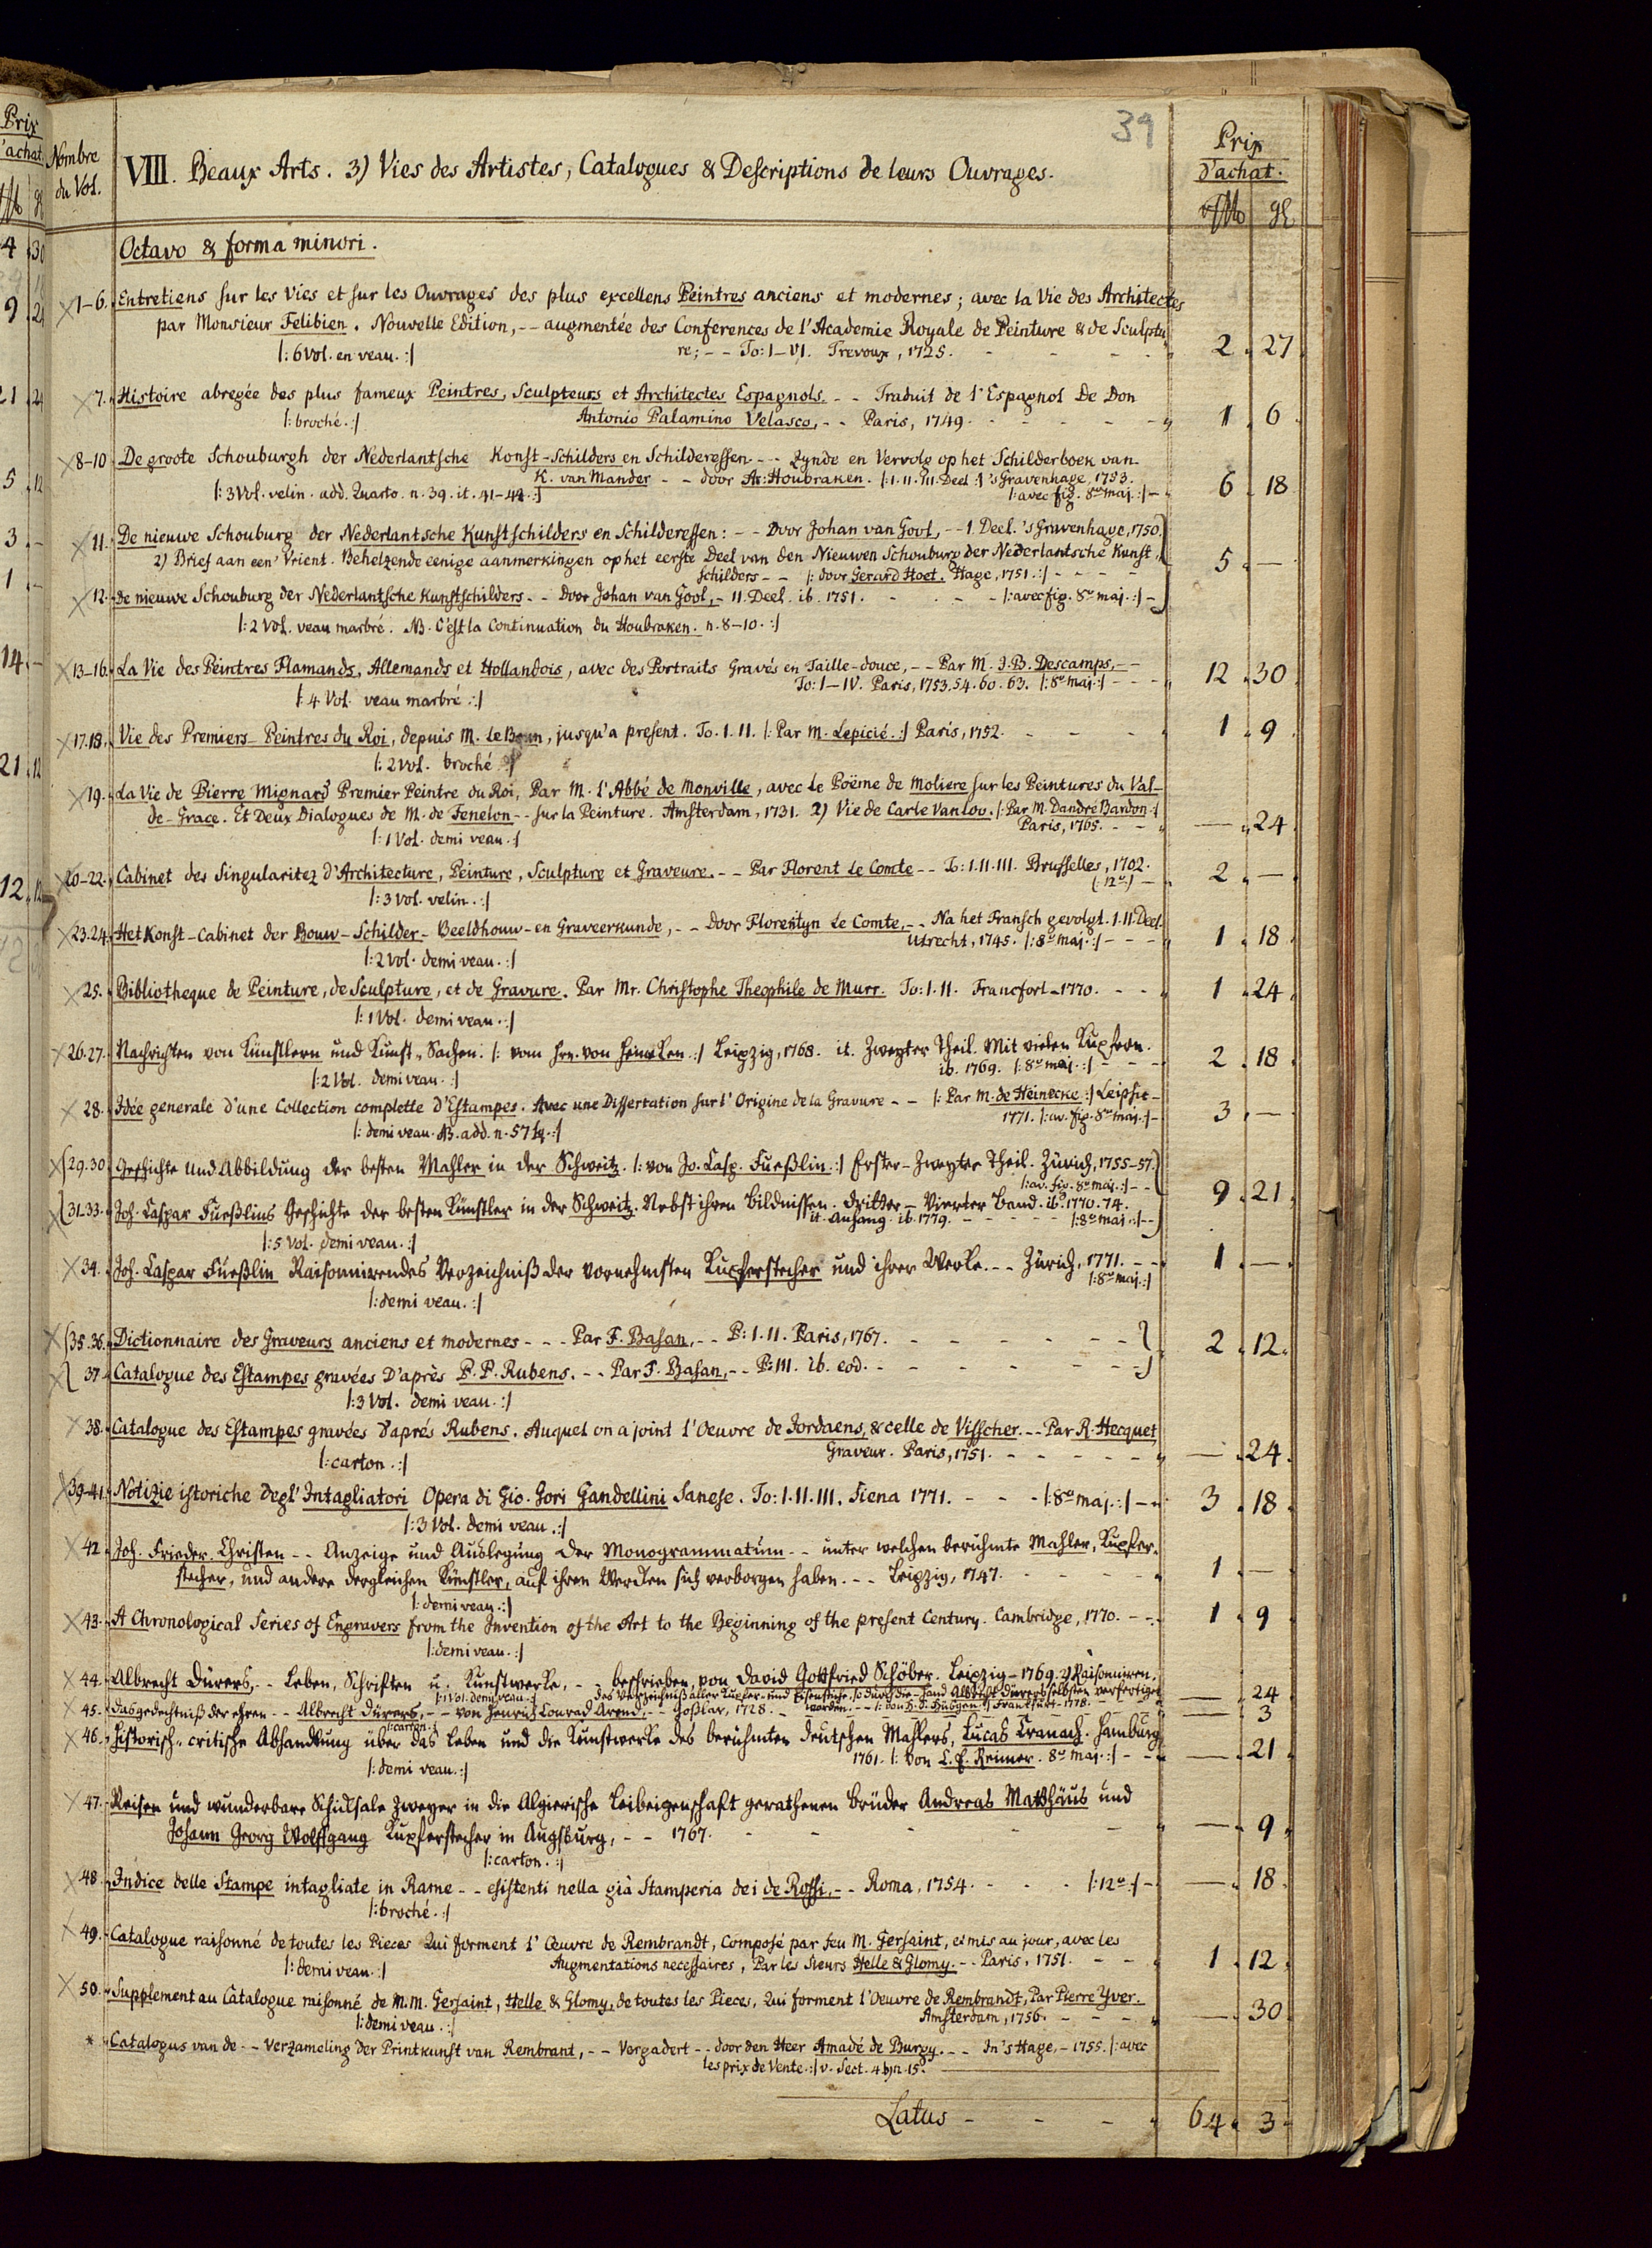 39
Prix
d'achat.
Nombre
du Vol.
VIII. Beaux Arts. 3) Vies des Artistes, Catalogues & Descriptions de leurs Ouvrages.
Octavo & forma minori.
1–6. Entretiens sur les Vies et sur les Ouvrages des plus excellens Peintres anciens et modernes; avec la Vie des Architectes
par Monsieur Felibien. Nouvelle Edition, -- augmentée des Conferences de l'Academie Royale de Peinture & de Sculptu
|: 6 Vol. en veau. :| re; -- To: I–VI. Trevoux, 1725. 2 27
7. Histoire abregée des plus fameux Peintres, Sculpteurs et Architectes Espagnols. -- Traduit de l'Espagnol De Don
|: broché. :| Antonio Palamino Velasco, -- Paris, 1749. 1 6
8–10 De groote Schouburgh der Nederlantsche Konst-Schilders en Schilderessen. -- Zynde en Vervolg op het Schilderboek van
K. van Mander -- door Ar: Houbraken. |: I. II. III. Deel :| 's Gravenhage, 1753.
|: 3 Vol. velin. add. Quarto. n. 39. it. 41–42. :| |: avec fig. 8vo maj. :| 6 18
11. De nieuwe Schouburg der Nederlantsche Kunstschilders en Schilderessen: -- Door Johan van Gool, -- I. Deel. 's Gravenhage, 1750.
2) Brief aan een' Vrient. Behelzende eenige aanmerkingen op het eerste Deel van den Nieuwen Schouburg der Nederlantsche Kunst,
schilders -- |: door Gerard Hoet. Hage, 1751. :| 5 —
12. De nieuwe Schouburg der Nederlantsche Kunstschilders -- Door Johan van Gool, - II. Deel. ib. 1751. |: avec fig. 8vo maj. :|
|: 2 Vol. veau marbré. NB. C'est la Continuation du Houbraken. n. 8–10. :|
13–16. La Vie des Peintres Flamands, Allemands et Hollandois, avec des Portraits Gravés en Taille-douce, -- Par M. J. B. Descamps, --
To: I–IV. Paris, 1753. 54. 60. 63. |: 8vo maj. :| 12 30
|: 4 Vol. veau marbré :|
17.18. Vie des Premiers-Peintres du Roi, depuis M. le Brun, jusqu'a present. To. I. II. |: Par M. Lepicié. :| Paris, 1752. 1 9
|: 2 Vol. broché :|
19. La Vie de Pierre Mignard Premier Peintre du Roi, Par M. l'Abbé de Monville, avec le Poëme de Moliere sur les Peintures du Val-
de-Grace. Et Deux Dialogues de M. de Fenelon -- sur la Peinture. Amsterdam, 1731. 2) Vie de Carle Vanloo. |: Par M. Dandré Bardon :|
|: 1 Vol. demi veau. :| Paris, 1765. — 24
20–22. Cabinet des Singularitez d'Architecture, Peinture, Sculpture et Graveure. -- Par Florent le Comte -- To: I. II. III. Brusselles, 1702.
|: 3 Vol. velin. :| |: 12o :| 2 —
23.24. Het Konst-Cabinet der Bouw-Schilder-Beeldhouw-en Graveerkunde, -- Door Florentyn le Comte, -- Na het Fransch gevolgt. I. II. Deel.
Utrecht, 1745. |: 8vo maj. :| 1 18
|: 2 Vol. demi veau. :|
25. Bibliotheque de Peinture, de Sculpture, et de Gravure. Par Mr. Christophe Theophile de Murr. To: I. II. Francfort - 1770. 1 24
|: 1 Vol. demi veau. :|
26.27. Nachrichten von Künstlern und Kunst-Sachen. |: vom Hrn. von Heineken :| Leipzig, 1768. it. Zweyter Theil. Mit vielen Kupfern.
ib. 1769. |: 8vo maj. :| 2 18
|: 2 Vol. demi veau. :|
28. Idée generale d'une Collection complette d'Estampes. Avec une Dissertation sur l'Origine de la Gravure -- |: Par M. de Heinecke :| Leipsic-
1771. |: av. fig. 8vo maj. :| 3 —
|: demi veau. NB. add. n. 57 :|
29.30 Geschichte und Abbildung der besten Mahler in der Schweitz. |: von Jo. Casp. Fueßlin :| Erster-Zweyter Theil. Zürich, 1755–57.
|: av. fig. 8vo maj. :| 9 21
31–33. Joh. Caspar Fueßlins Geschichte der besten Künstler in der Schweitz. Nebst ihren Bildnissen. Dritter – Vierter Band. ib. 1770. 74.
it. Anhang. ib. 1779. |: 8vo maj. :|
|: 5 Vol. demi veau. :|
34. Joh. Caspar Fueßlin Raisonnirendes Verzeichniß der vornehmsten Kupferstecher und ihrer Werke. -- Zürich, 1771. 1 —
|: 8vo maj. :|
|: demi veau. :|
35.36. Dictionnaire des Graveurs anciens et modernes --- Par F. Basan, -- P: I. II. Paris, 1767. 2 12
37. Catalogue des Estampes gravées d'après P. P. Rubens. -- Par F. Basan, -- P: III. ib. eod.
|: 3 Vol. demi veau. :|
38. Catalogue des Estampes gravées d'aprés Rubens. Auquel on a joint l'Oeuvre de Jordaens, & celle de Visscher. -- Par R. Hecquet
Graveur. Paris, 1751. — 24
|: carton. :|
39–41. Notizie istoriche degl' Intagliatori Opera di Gio. Gori Gandellini Sanese. To: I. II. III. Siena 1771. |: 8vo maj. :| 3 18
|: 3 Vol. demi veau. :|
42. Joh. Frieder. Christen -- Anzeige und Auslegung der Monogrammatum -- unter welchen berühmte Mahler, Kupfer-
stecher, und andere dergleichen Künstler, auf ihren Werken sich verborgen haben. -- Leipzig, 1747. 1 —
|: demi veau. :|
43. A Chronological Series of Engravers from the Invention of the Art to the Beginning of the present Century. Cambridge, 1770. 1 9
|: demi veau. :|
44. Albrecht Dürers, -- Leben, Schriften u. Kunstwerke, -- beschrieben, von David Gottfried Schöber. Leipzig – 1769. 2) Raisonniren.
|: 1 Vol. demi veau. :| des Verzeichniß aller Kupfer- und Eisenstiche, so durch die Hand Albrecht Dürers selbsten verfertiget
worden. -- |: von H. S. Hüsgen :| Frankfurt - 1778. — 24
45. Das gedechtniß der ehren -- Albrecht Dürers, -- von Henrich Conrad Arend, -- Goßlar, 1728. — 3
|: carton. :|
46. Historisch-critische Abhandlung über das Leben und die Kunstwerke des berühmten deutschen Mahlers, Lucas Cranach. Hamburg
1761. |: Von C. E. Reimer. 8vo maj. :| — 21
|: demi veau. :|
47. Reisen und wunderbare Schicksale zweyer in die Algierische Leibeigenschaft gerathenen Brüder Andreas Matthäus und
Johann Georg Wolffgang Kupferstecher in Augsburg, -- 1767. — 9
|: carton. :|
48. Indice delle Stampe intagliate in Rame -- esistenti nella già Stamperia dei de Rossi, -- Roma, 1754. |: 12o :| — 18
|: broché. :|
49. Catalogue raisonné de toutes les Pieces Qui forment l'Œuvre de Rembrandt, Composé par feu M. Gersaint, et mis au jour, avec les
|: demi veau. :| Augmentations necessaires, Par les Sieurs Helle & Glomy. -- Paris, 1751. 1 12
50. Supplement au Catalogue raisonné de M.M. Gersaint, Helle & Glomy, de toutes les Pieces, Qui forment l'Oeuvre de Rembrandt, Par Pierre Yver.
|: demi veau. :| Amsterdam, 1756. — 30
* Catalogus van de -- Verzameling der Printkunst van Rembrant, -- Vergadert -- door den Heer Amadé de Burgy. -- In 's Hage, - 1755. |: avec
les prix de Vente. :| v. Sect. 4 b) n. 15.
Latus - - - 64 3